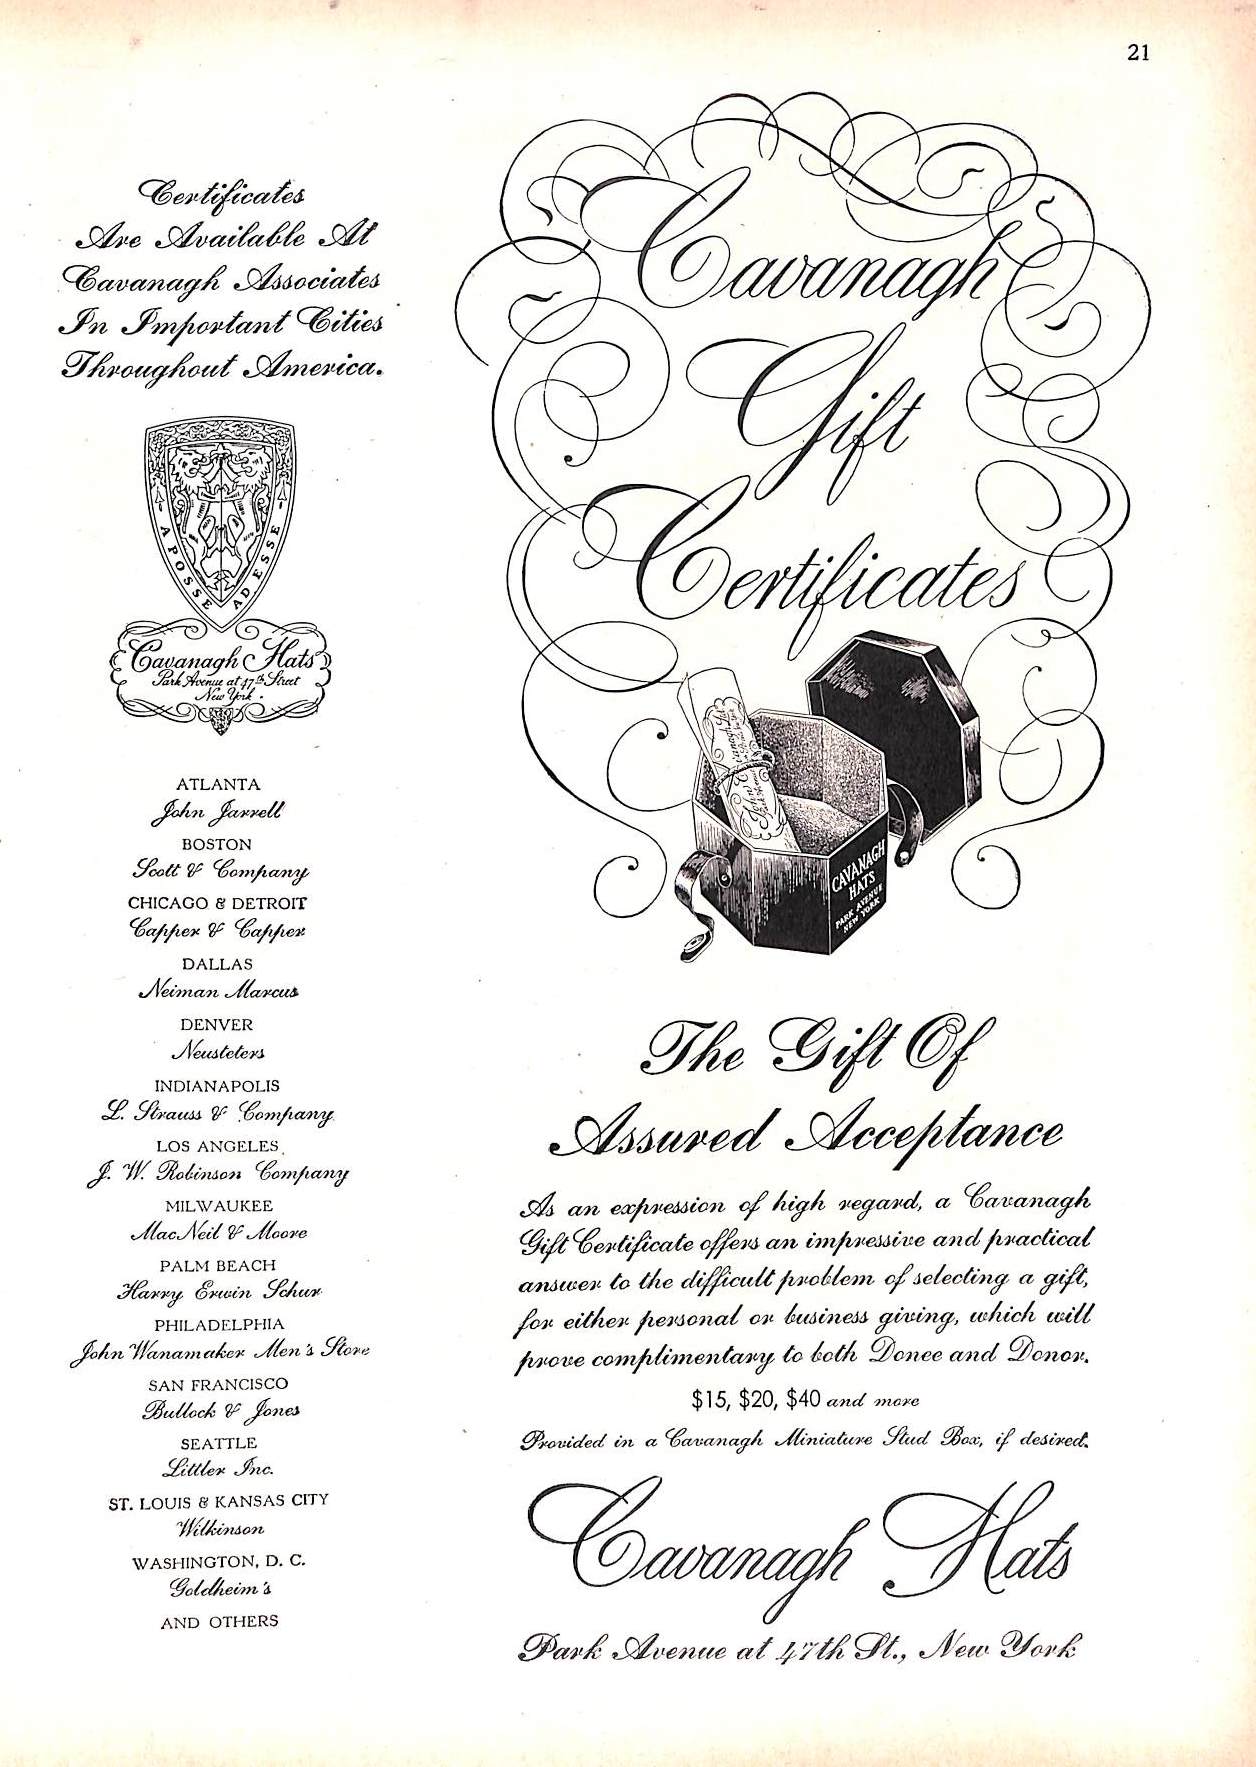 21
Certificates
Are Available At
Cavanagh Associates
In Important Cities
Throughout America.
A POSSE AD ESSE
Cavanagh Hats
Park Avenue at 47th Street
New York
ATLANTA
John Jarrell
BOSTON
Scott & Company
CHICAGO & DETROIT
Capper & Capper
DALLAS
Neiman Marcus
DENVER
Neusteters
INDIANAPOLIS
L. Strauss & Company
LOS ANGELES
J. W. Robinson Company
MILWAUKEE
MacNeil & Moore
PALM BEACH
Harry Erwin Schur
PHILADELPHIA
John Wanamaker Men's Store
SAN FRANCISCO
Bullock & Jones
SEATTLE
Littler Inc.
ST. LOUIS & KANSAS CITY
Wilkinson
WASHINGTON, D. C.
Goldheim's
AND OTHERS
Cavanagh
Gift
Certificates
CAVANAGH
HATS
PARK AVENUE
NEW YORK
The Gift Of
Assured Acceptance
As an expression of high regard, a Cavanagh
Gift Certificate offers an impressive and practical
answer to the difficult problem of selecting a gift,
for either personal or business giving, which will
prove complimentary to both Donee and Donor.
$15, $20, $40 and more
Provided in a Cavanagh Miniature Stud Box, if desired.
Cavanagh Hats
Park Avenue at 47th St., New York